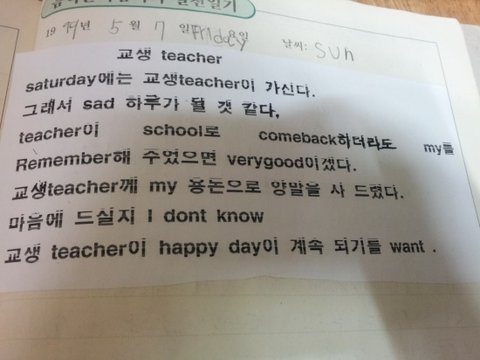 1999년 5월 7일 Friday요일 날씨: Sun
교생 teacher
saturday에는 교생teacher이 가신다.
그래서 sad 하루가 될 갯 같다,
teacher이 school로 comeback하더라도 my를
Remember해 주었으면 verygood이겠다.
교생teacher께 my 용돈으로 양말을 사 드렸다.
마음에 드실지 I dont know
교생 teacher이 happy day이 계속 되기를 want .